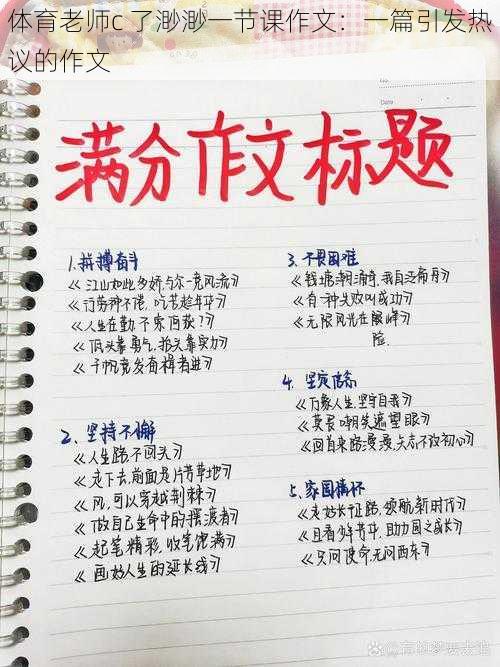 体育老师c 了渺渺一节课作文：一篇引发热
议的作文
No
Date
满分作文标题
1.拼搏奋斗
《江山如此多娇,与你一竞风流》
《行努种不倦,吃苦趁年华》
《人生在勤,不索何获？》
《低头靠勇气,抬头靠实力》
《千帆竞发有楫者进》
2.坚持不懈
《人生路,不回头》
《走下去,前面是片芳草地》
《风,可以穿越荆棘》
《做自己生命中的摆渡者》
《起笔精彩,收笔饱满》
《画好人生的延长线》
3.不畏困难
《钱塘潮涌奔,我自逆角舟》
《有一种失败叫成功》
《无限风光在险峰》
险
4.坚定信念
《万象人生,坚守自我》
《莫畏嘲笑遮望眼》
《回首来路漫漫,矢志不改初心》
5.家国情怀
《走好长征路,领航新时代》
《且看少年奋斗,助力国之成长》
《只问使命,无问西东》